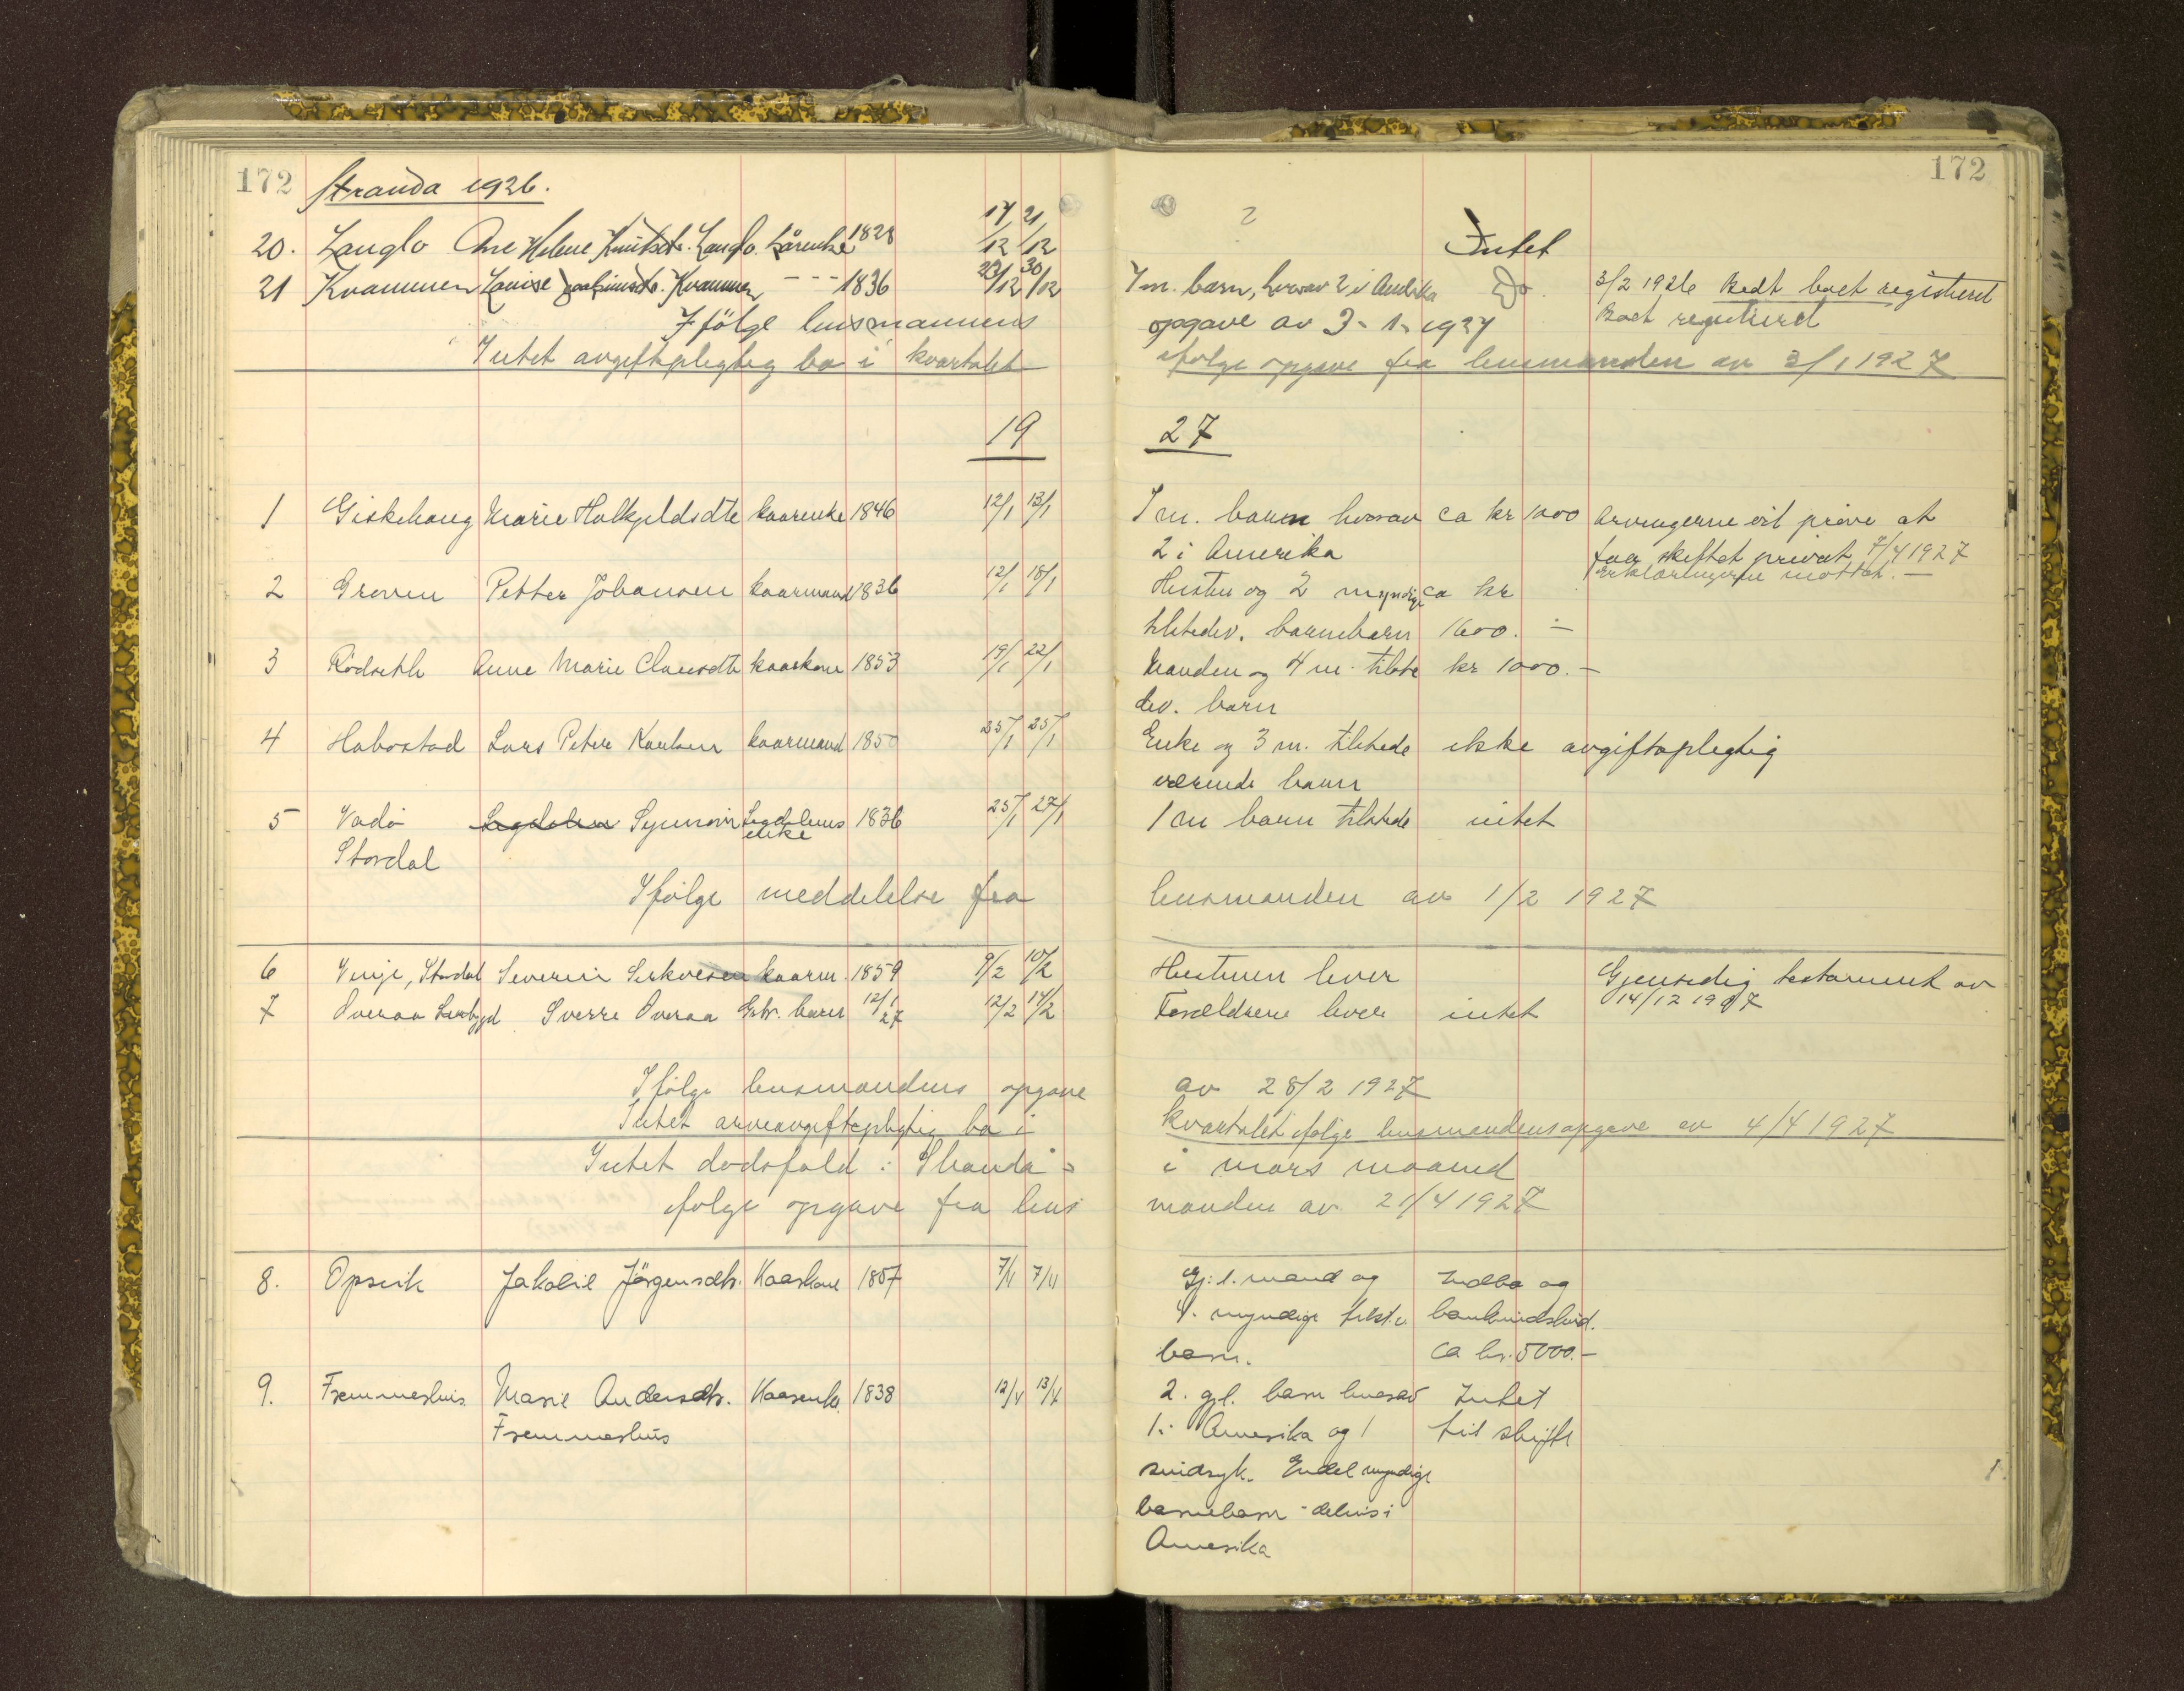 172 Stranda 1926. 172
17/12 21/12
20. Langlo Ane Helene Knutsdtr. Langlo. kårenke 1828 2 Intet
21 Kvammen Lovise Joakimsdtr. Kvammen --- 1836 23/12 30/12 7 m. barn, hvorav 2 i Amerika Do. 3/2 1926 Bedt boet registreret
Boet registrert
Ifölge lensmannens opgave av 3-1-1927
Intet avgiftspligtig bo i kvartalet ifölge opgave fra lensmanden av 3/1 1927
19 27
1 Giskehaug Marie Halkjeldsdtr kaarenke 1846 12/1 13/1 7 m. barn hvorav ca kr 1000 Arvingerne vil prøve at
2 i Amerika faa skiftet privat 7/4 1927
Erklæringerne mottat. —
2 Groven Petter Johansen kaarmand 1836 12/1 18/1 Hustru og 2 myndige ca kr
tilstedev. barnebarn 1600. —
3 Rödseth Anne Marie Clausdtr kaarkone 1853 19/1 22/1 Manden og 4 m. tilste kr 1000. —
dev. barn
4 Habostad Lars Peter Karlsen kaarmand 1850 25/1 25/1 Enke og 3 m. tilstede ikke avgiftspligtig
værende barn
5 Vadö Synnöve Løgdalens 1836 25/1 27/1 1 m barn tilstede intet
enke
Stordal
Ifölge meddelelse fra lensmanden av 1/2 1927
6 Vinje, Stordal Severin Sirkvesen kaarm. 1859 9/2 10/2 Hustruen lever Gjensidig testament av
14/12 1907
7 Overaa Sverre Overaa Gbr. barn 12/1 27 12/2 14/2 Forældrene lever intet
Ifölge lensmandens opgave av 28/2 1927
Intet arveavgiftspligtig bo i kvartalet ifölge lensmandens opgave av 4/4 1927
Intet dödsfald i Stranda i mars maaned
ifölge opgave fra lensmanden av 21/4 1927
8. Opsvik Jakobie Jörgensdtr. Kaarkone 1857 7/4 7/4 Gj: l. mand og Indbo og
4. myndige tilst.v. bankindskud.
barn. ca kr. 5000.—
9. Fremmerhus Marie Andersdtr. Kaarenke 1838 12/4 13/4 2. gjl. barn hvorav Intet
Fremmerhus 1 i Amerika og 1 til skifte
sindsyk. Endel myndige
barnebarn - delvis i
Amerika